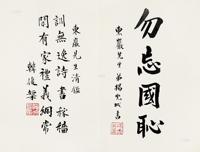 勿忘國恥
東巖先生 弟楊虎城書
東巖先生清鑑
訓無逸詩書稼穡
閒有家禮義綱常
韓復榘